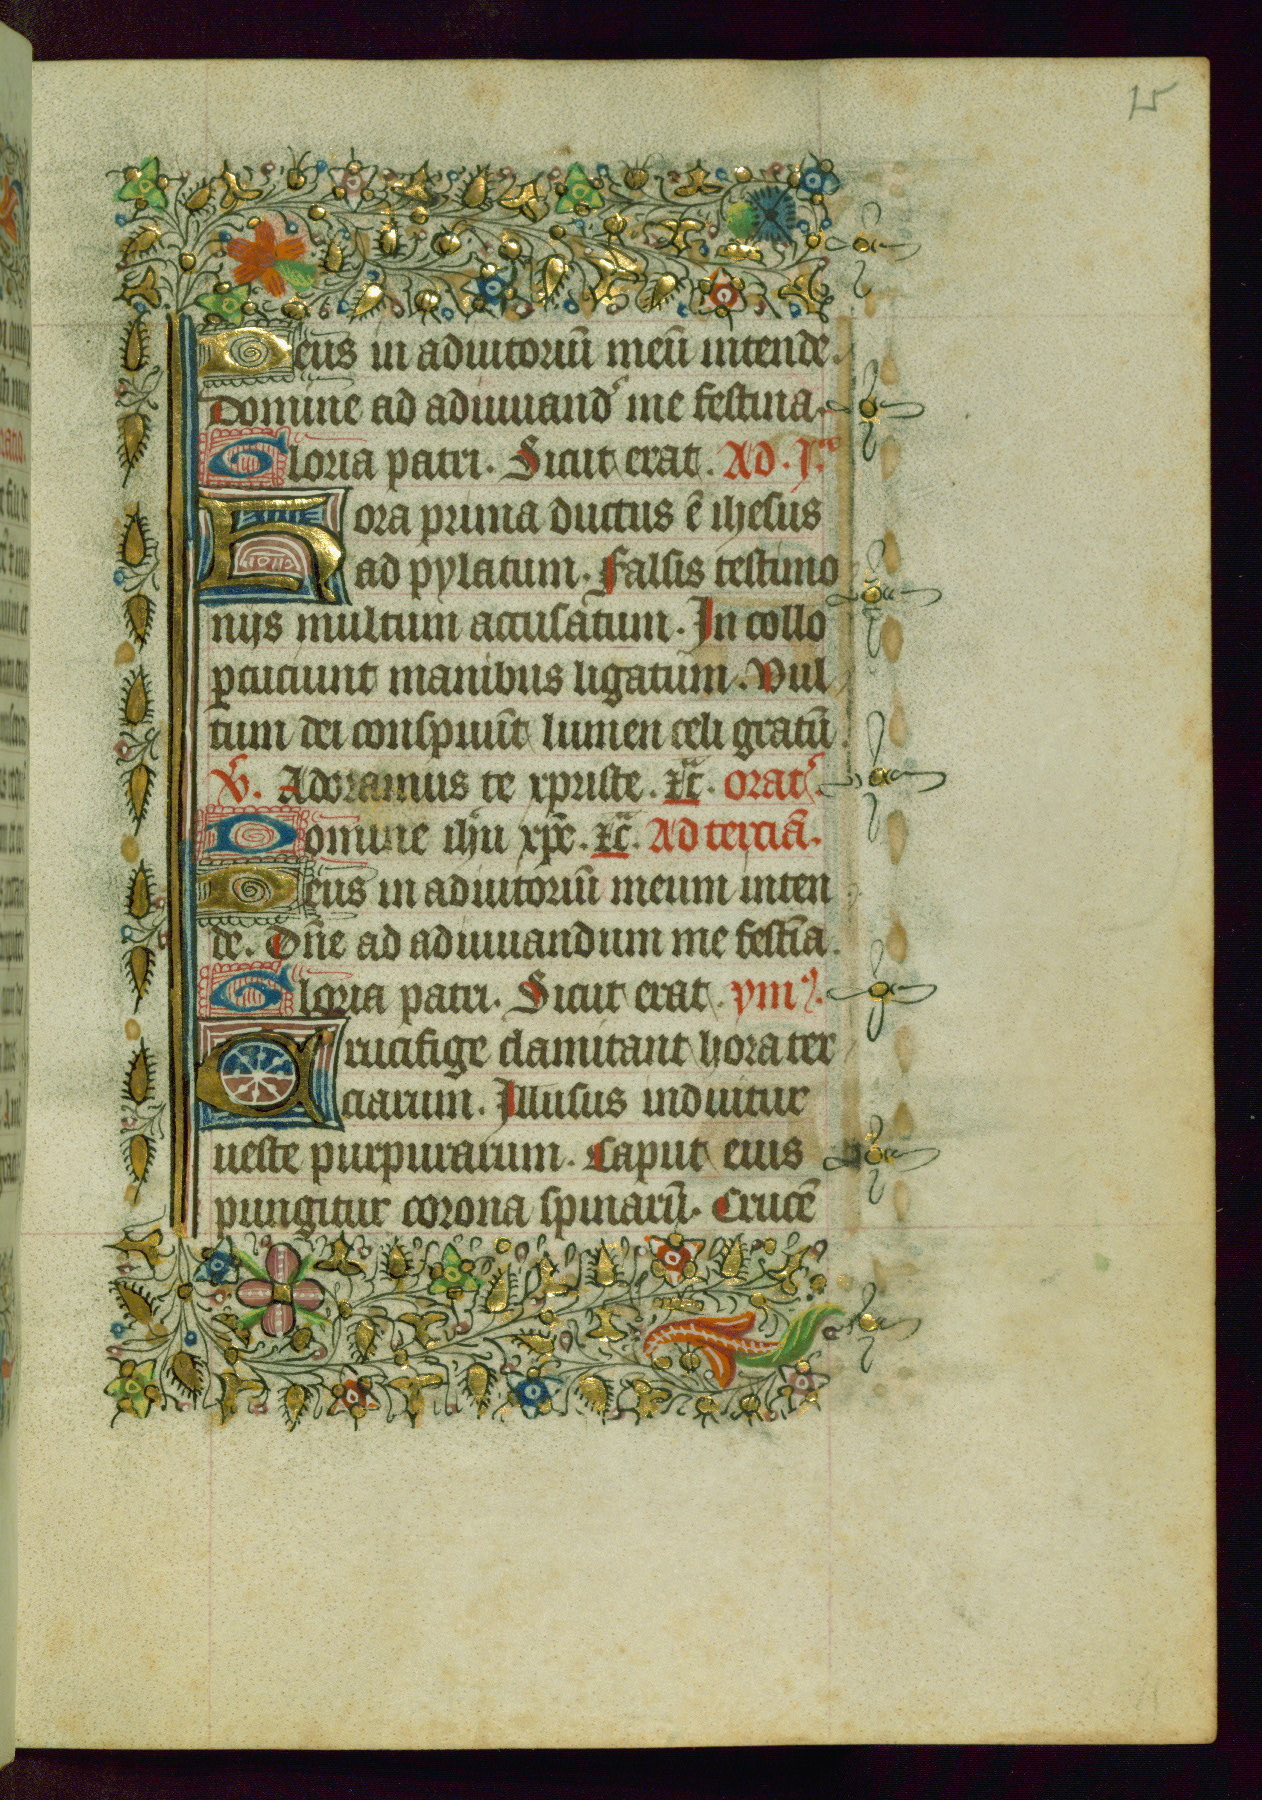 15
Deus in adiutoriū meū intende.
Domine ad adiuuand' me festina.
Gloria patri. Sicut erat. Ad .Iᵃ
Hora prima ductus ē ihesus
ad pylatum. Falsis testimo
nijs multum accusatum. In collo
ꝑcuciunt manibus ligatum. Vul
tum dei conspuūt lumen celi gratū.
℣. Adoramus te xpriste. ⁊c̄. orat'.
Domine ihū xp̄e. ⁊c̄. Ad terciā.
Deus in adiutoriū meum inten
de. Dn̄e ad adiuuandum me festīa.
Gloria patri. Sicut erat. ymꝰ.
Crucifige clamitant hora ter
ciarum. Illusus induitur
ueste purpurarum. Caput eius
pungitur corona spinarū. Crucē